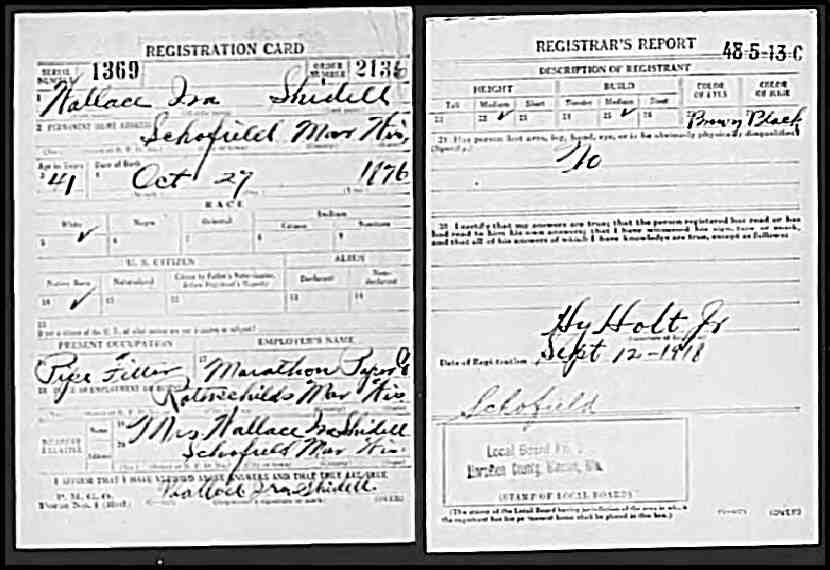 REGISTRATION CARD
SERIAL NUMBER 1369 ORDER NUMBER 2136
1 Wallace Ira Shidell
2 PERMANENT HOME ADDRESS
Schofield Mar Wis,
Age in Years Date of Birth
3 41 4 Oct 27 1876
RACE
White Negro Oriental Indian
Citizen
5 ✓ 6 7 8 9
U. S. CITIZEN ALIEN
Native Born Naturalized Citizen by Father's Naturalization Declarant Non-declarant
10 ✓ 11 12 13 14
15
PRESENT OCCUPATION EMPLOYER'S NAME
Pipe Fitter 17 Marathon Paper
Rothschilds Mar Wis
NEAREST RELATIVE Name 19 Mrs Wallace Ira Shidell
Address 20 Schofield Mar Wis
I AFFIRM THAT I HAVE VERIFIED ABOVE ANSWERS AND THAT THEY ARE TRUE
P. M. G. O.
Form No. 1 (Red) Wallace Ira Shidell
(OVER)
REGISTRAR'S REPORT 48-5-13-C
DESCRIPTION OF REGISTRANT
HEIGHT BUILD COLOR OF EYES COLOR OF HAIR
Tall Medium Short Slender Medium Stout
21 22 ✓ 23 24 25 ✓ 26 27 Brown Black
29 Has person lost arm, leg, hand, eye, or is he obviously physically disqualified?
(Specify.)
No
30 I certify that my answers are true; that the person registered has read or has
had read to him his own answers; that I have witnessed his signature or mark,
and that all of his answers of which I have knowledge are true, except as follows:
Hy Holt Jr
Date of Registration Sept 12-1918
Schofield
Local Board
Marathon County, Wis.
(STAMP OF LOCAL BOARD)
(The stamp of the Local Board having jurisdiction of the area in which
the registrant has his permanent home shall be placed in this box.)
(OVER)